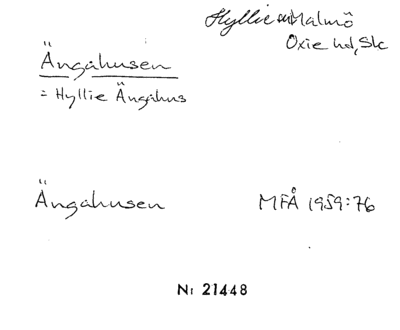 Hyllie Malmö
Oxie hd, Sk
Ängahusen
= Hyllie Ängahus
Ängahusen MFÅ 1959:76
N: 21448